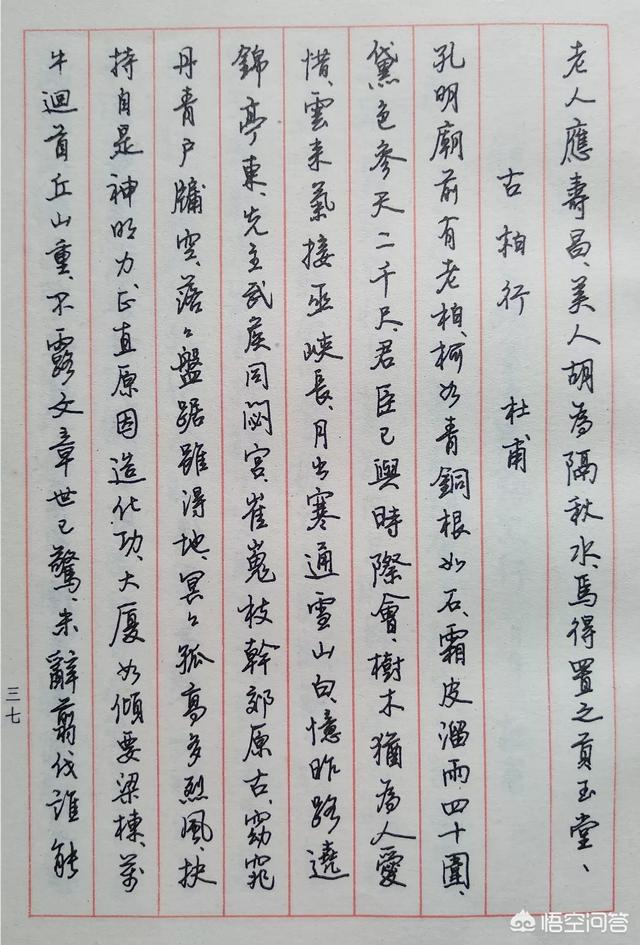 老人應壽昌、美人胡為隔秋水、焉得置之貢玉堂、
古柏行 杜甫
孔明廟前有老柏、柯如青銅根如石、霜皮溜雨四十圍、
黛色參天二千尺、君臣已與時際會、樹木猶為人愛
惜、雲來氣接巫峽長、月出寒通雪山白、憶昨路遶
錦亭東、先主武侯同閟宮、崔嵬枝幹郊原古、窈窕
丹青戶牖空、落々盤踞雖得地、冥々孤高多烈風、扶
持自是神明力、正直原因造化功、大廈如傾要梁棟、萬
牛迴首丘山重、不露文章世已驚、未辭翦伐誰能
三七
悟空问答